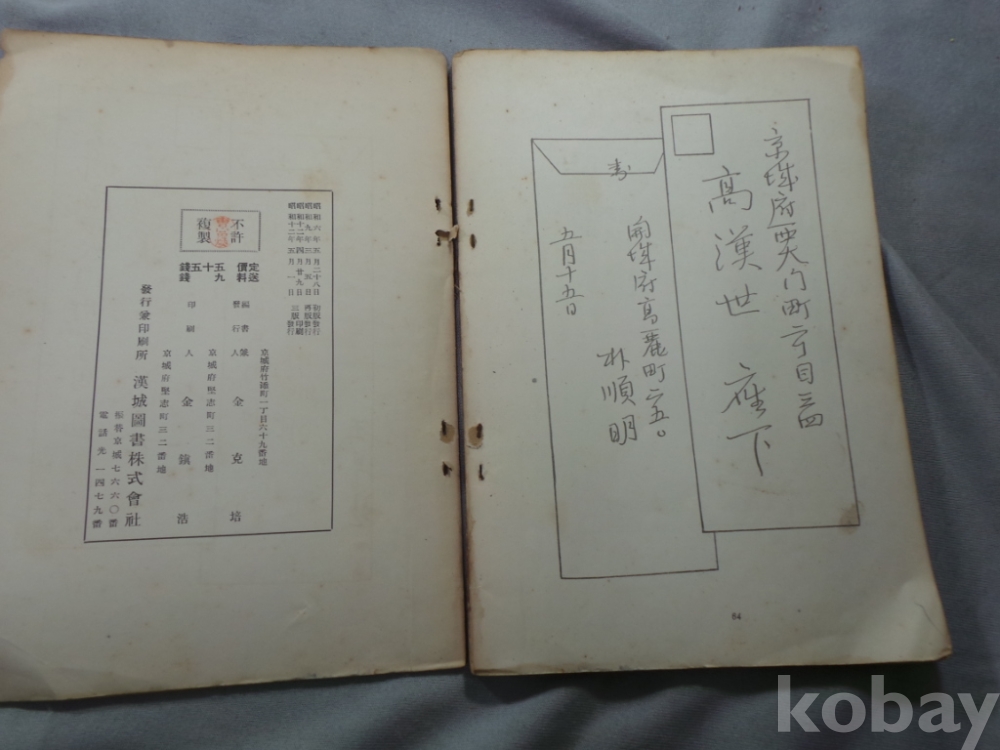 京城府西大門町二丁目三四
高漢世 座下
開城府高麗町二五〇
朴順明
五月十五日
54
昭和六年五月二十八日 初版發行
昭和九年三月五日 再版發行
昭和十二年四月廿九日 三版印刷
昭和十二年五月一日 三版發行
不許
複製
定價 五十五錢
送料 九錢
京城府竹添町一丁目六十九番地
編者兼
發行人 金克培
京城府堅志町三二番地
印刷人 金鎭浩
京城府堅志町三二番地
發行兼印刷所 漢城圖書株式會社
振替京城七六六〇番
電話光一四七九番
kobay